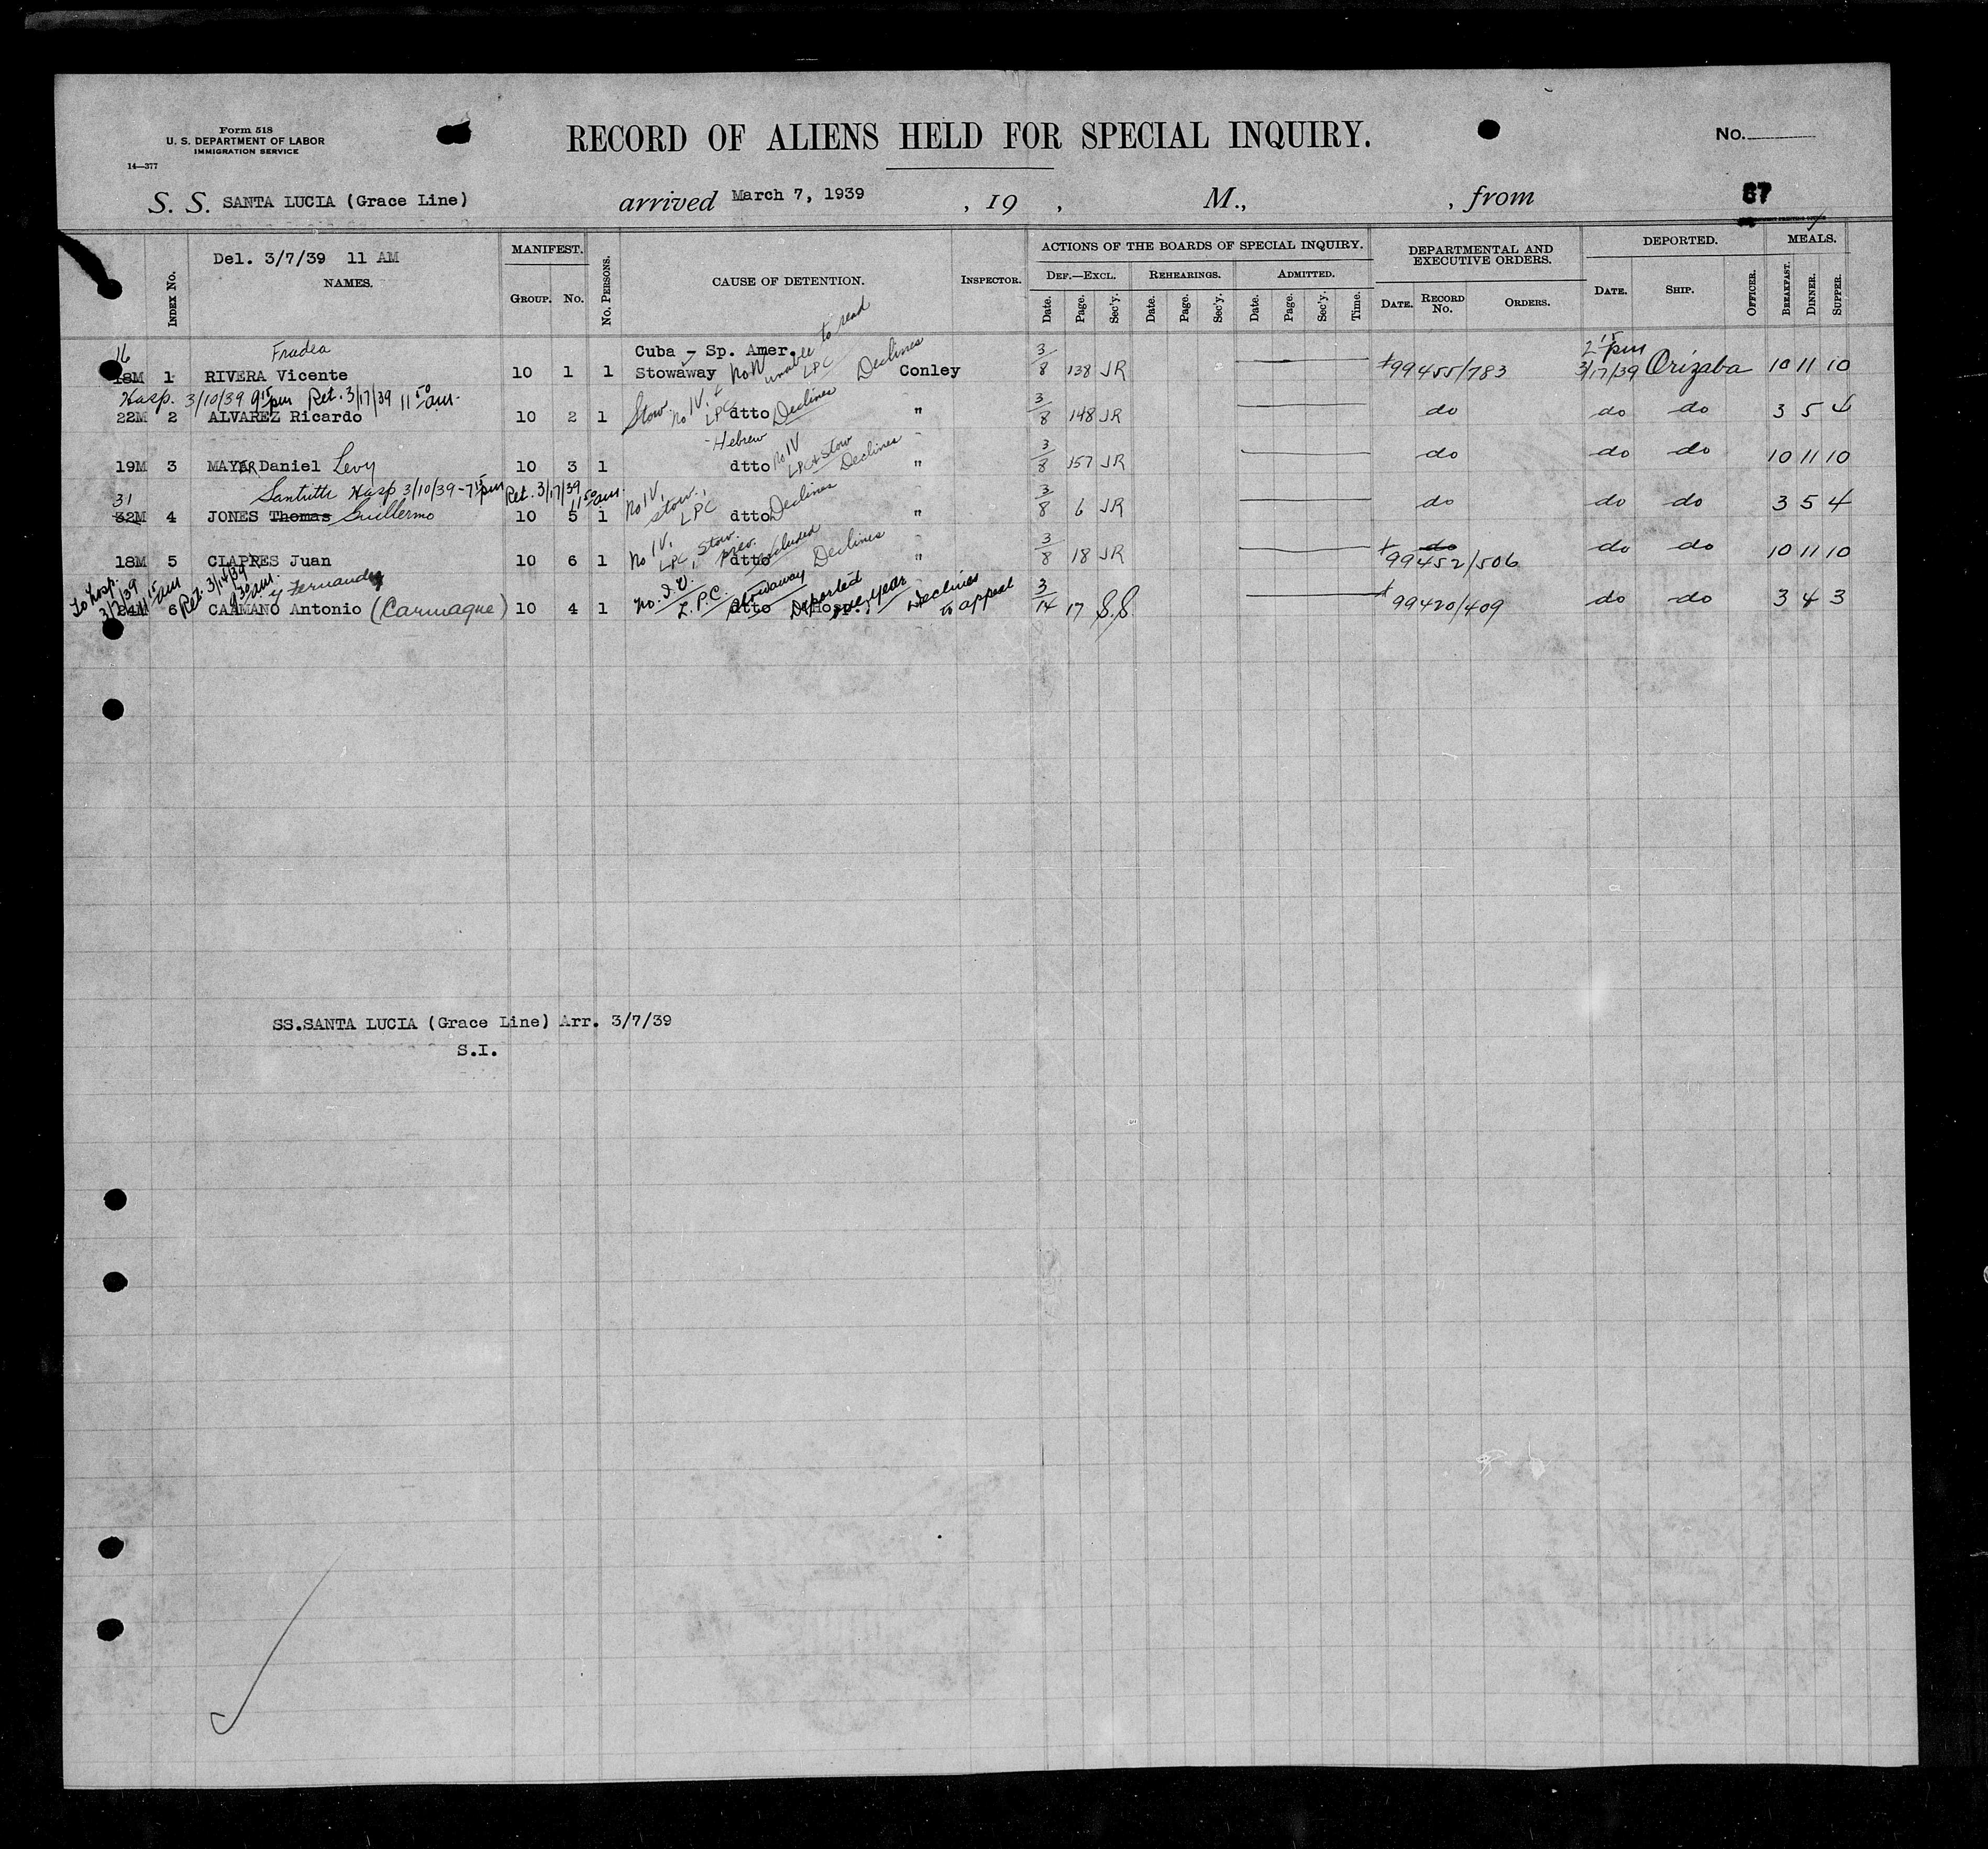 Form 518
U. S. DEPARTMENT OF LABOR
IMMIGRATION SERVICE
14—377
RECORD OF ALIENS HELD FOR SPECIAL INQUIRY.
No.
S. S. SANTA LUCIA (Grace Line) arrived March 7, 1939 , 19 , M., , from
67
Del. 3/7/39 11 AM
INDEX No. NAMES. MANIFEST. GROUP. No. No. PERSONS. CAUSE OF DETENTION. INSPECTOR. ACTIONS OF THE BOARDS OF SPECIAL INQUIRY. DEF.—EXCL. Date. Page. Sec'y. REHEARINGS. Date. Page. Sec'y. ADMITTED. Date. Page. Sec'y. Time. DEPARTMENTAL AND EXECUTIVE ORDERS. DATE. RECORD No. ORDERS. DEPORTED. DATE. SHIP. OFFICER. MEALS. BREAKFAST. DINNER. SUPPER.
16 Fradea Cuba - Sp. Amer. unable to read 2 15 pm
18M 1 RIVERA Vicente 10 1 1 Stowaway No IV LPC Declines Conley 3/8 138 JR 99455/783 3/17/39 Orizaba 10 11 10
Hosp. 3/10/39 9 15 pm Ret. 3/17/39 11 50 am.
22M 2 ALVAREZ Ricardo 10 2 1 Stow. No IV. + LPC dtto Declines " 3/8 148 JR do do do 3 5 4
Hebrew
19M 3 MAYER Daniel Levy 10 3 1 dtto No IV LPC + Stow Declines " 3/8 157 JR do do do 10 11 10
31 Hosp 3/10/39 - 7 15 pm Ret. 3/17/39 11 50 am.
32M 4 JONES Thomas Guillermo 10 5 1 No IV, Stow., LPC dtto Declines " 3/8 6 JR do do do 3 5 4
18M 5 CLAPRES Juan 10 6 1 No IV, LPC, Stow. prev. excluded dtto Declines " 3/8 18 JR do 99452/506 do do 10 11 10
To Hosp. 3/7/39 11 15 am Ret. 3/14/39 9 30 am. y Fernandez
24M 6 CAAMANO Antonio (Carmaque) 10 4 1 No. I.V. L.P.C. Stowaway dtto (Hosp.) Deported one year Declines to appeal 3/14 17 S.S. 99420/409 do do 3 4 3
SS.SANTA LUCIA (Grace Line) Arr. 3/7/39
S.I.